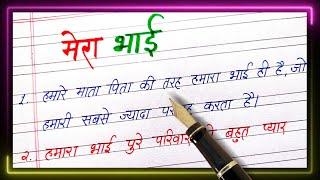 मेरा भाई
1. हमारे माता पिता की तरह हमारा भाई ही है, जो
हमारी सबसे ज्यादा करता है।
2. हमारा भाई पुरे बहुत प्यार